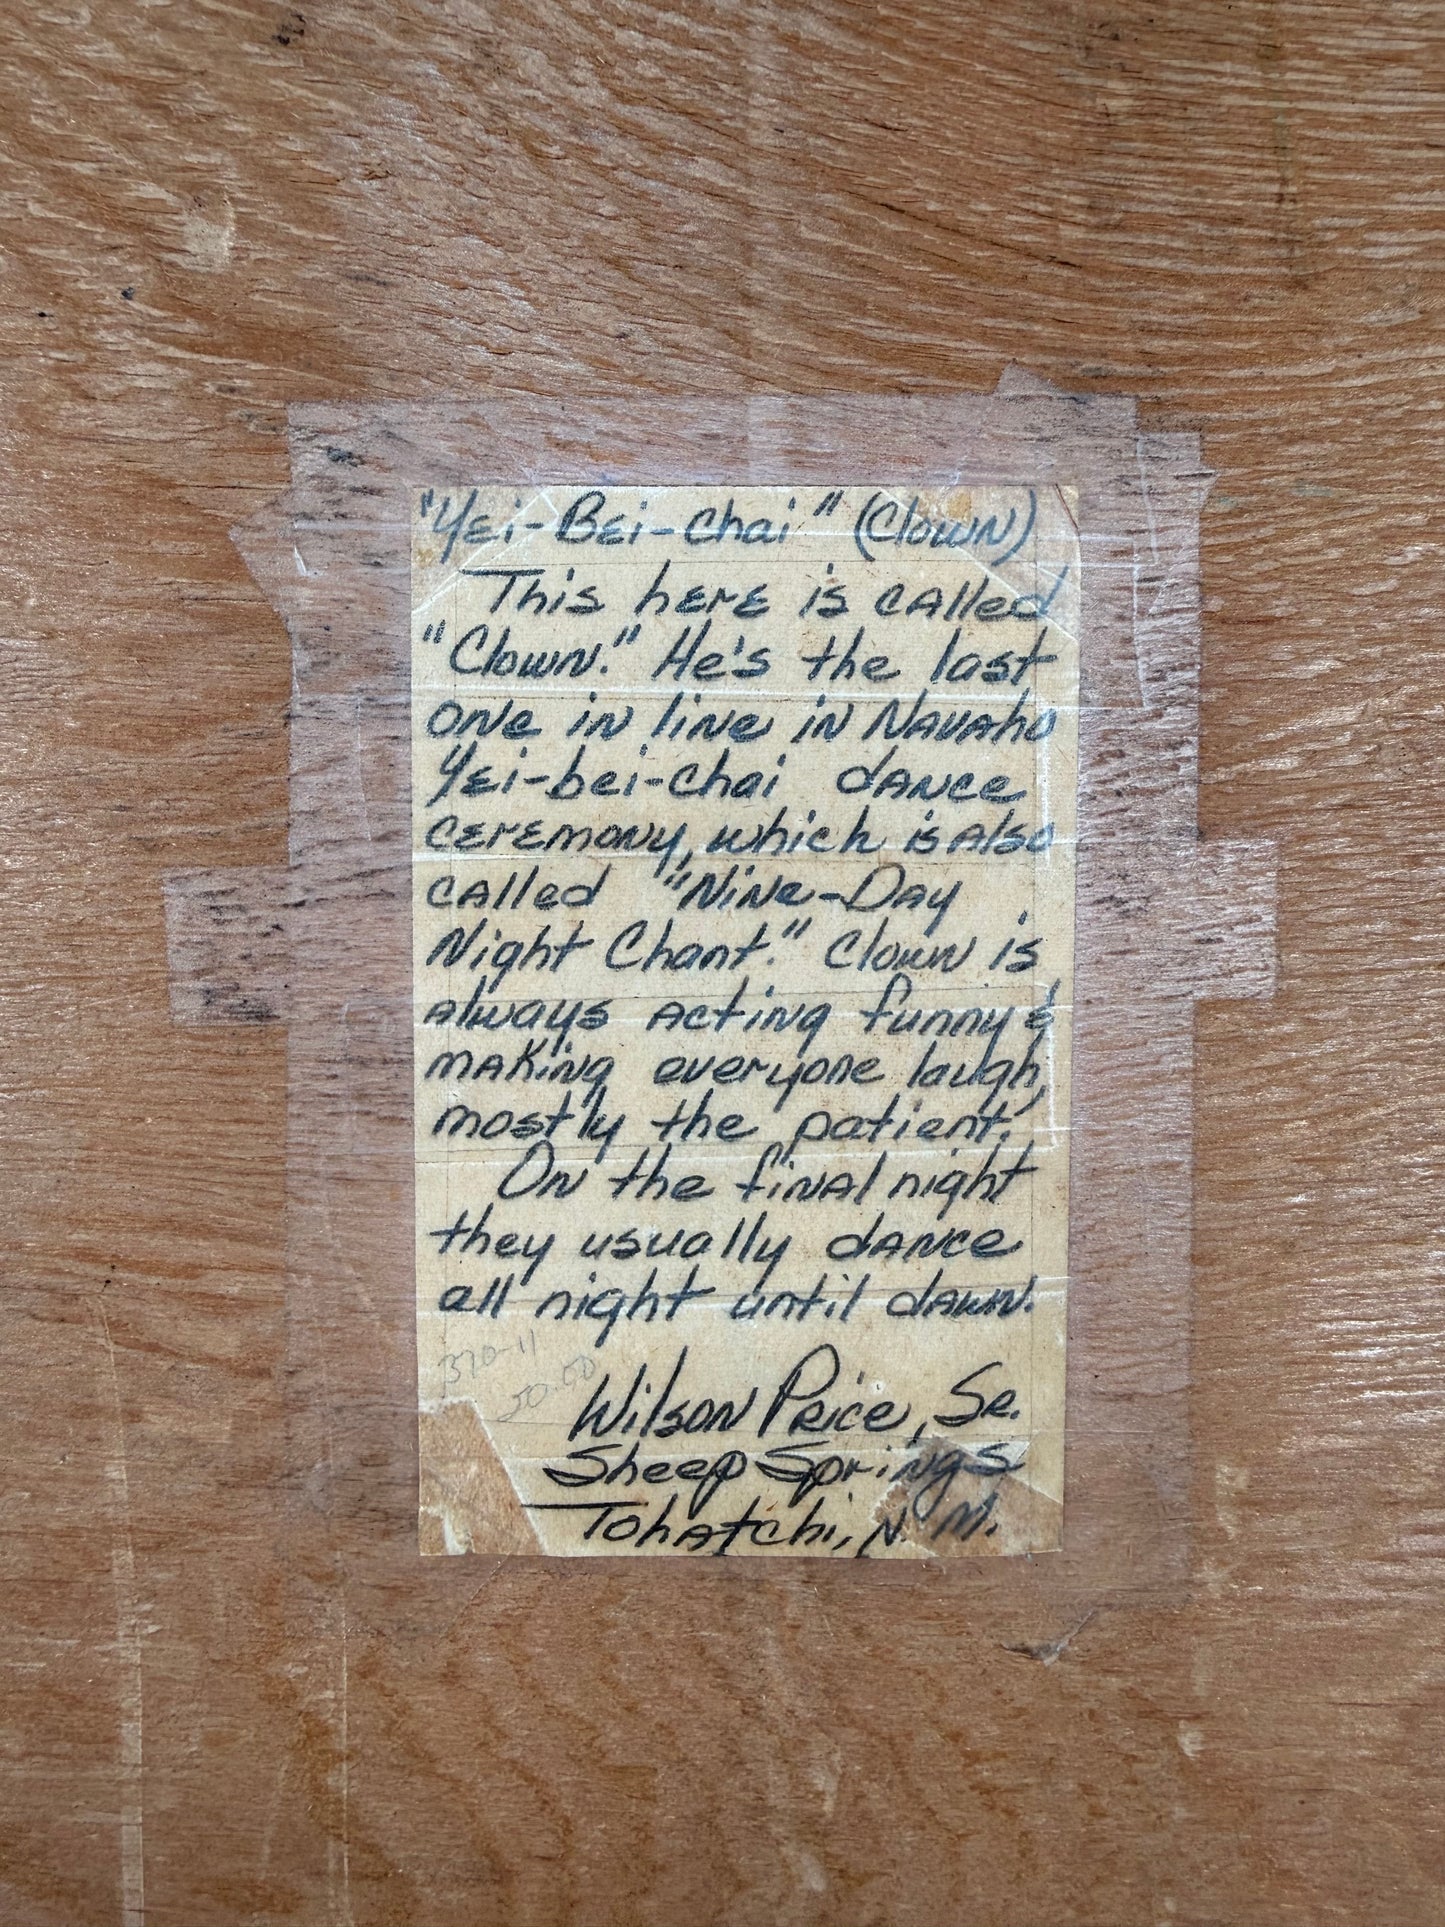 "Yei-Bei-chai" (Clown)
This here is called
"Clown." He's the last
one in line in Navaho
Yei-bei-chai dance
ceremony, which is also
called "Nine-Day
Night Chant." Clown is
always acting funny &
making everyone laugh,
mostly the patient.
On the final night
they usually dance
all night until dawn.
370-11
50.00
Wilson Price, Sr.
Sheep Springs
Tohatchi, N. M.